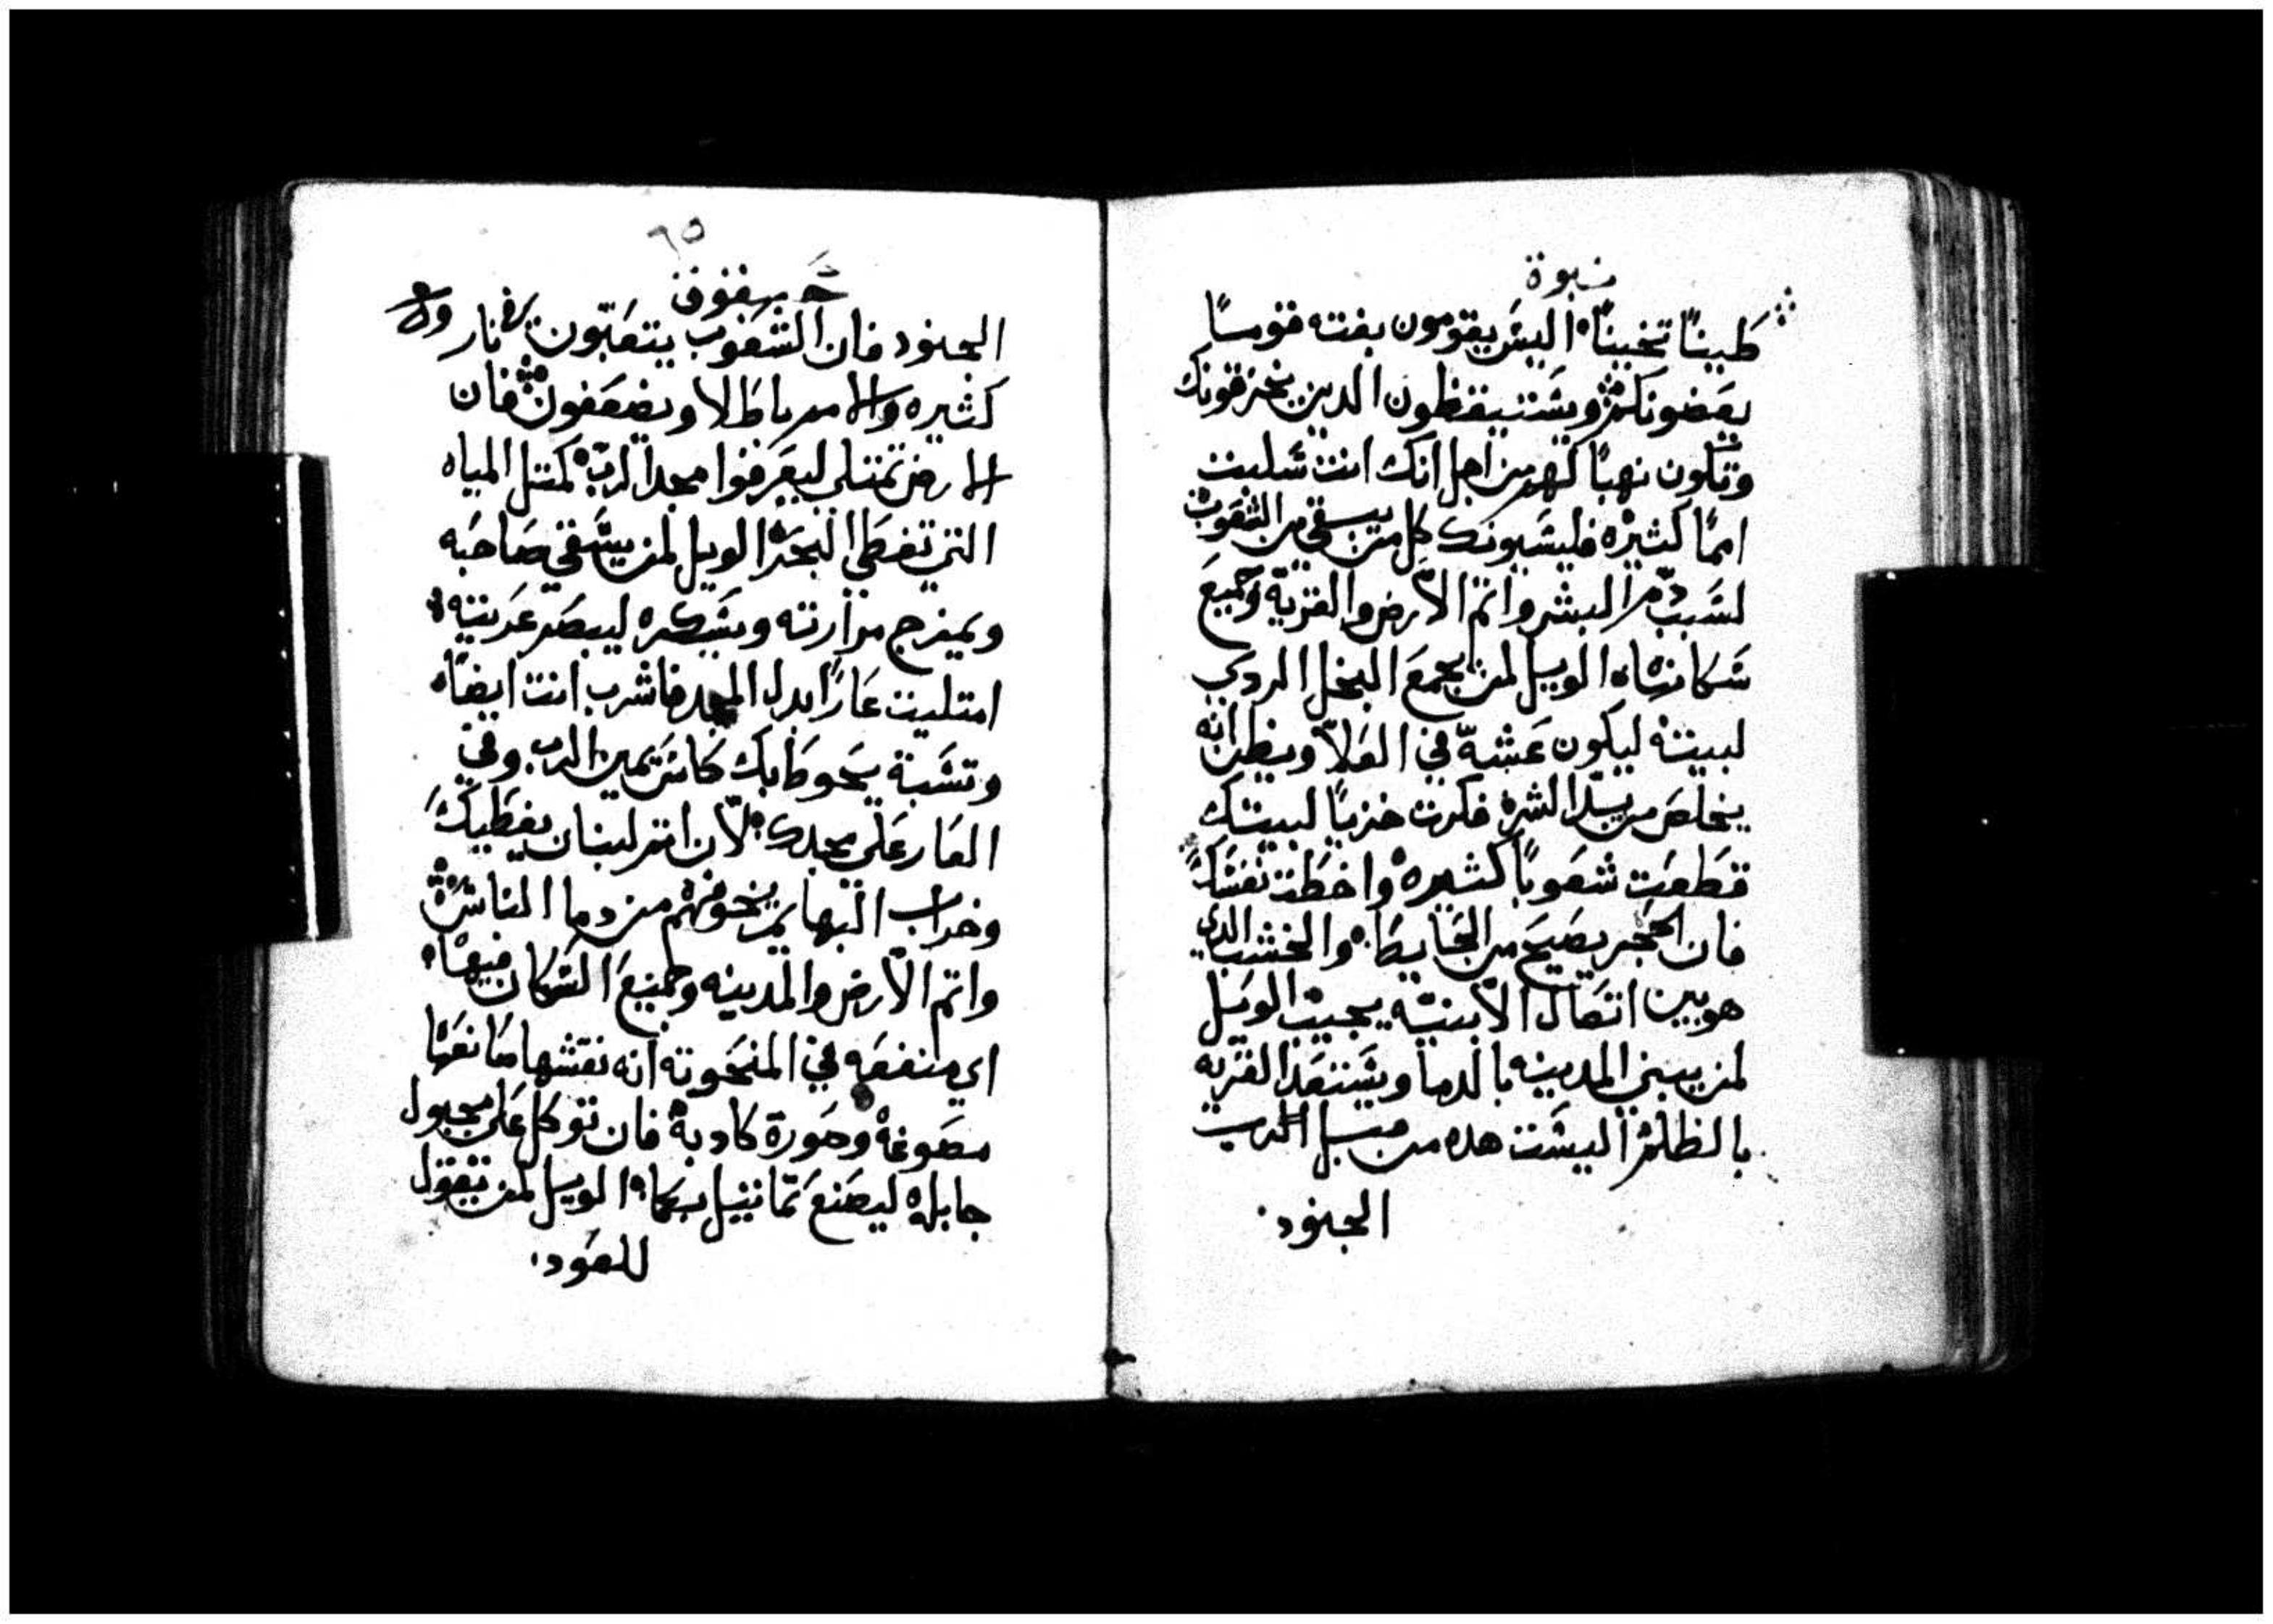 نبوة
طيناً تخيناً اليس يقومون بغته قوماً
يعضونك ويستيقظون الدين يخزقونك
وتكون نهباً لهم من اجل انك انت سلبت
امماً كثيره فليسبونك كل من يبقي من الشعوب
لسبب دم البشر واتم الارض والقرية وجميع
سكانها الويل لمن يجمع البخل الردي
لبيته ليكون عشه في العلا ويظن انه
يخلص من يد الشر فكرت خزياً لبيتك
قطعت شعوباً كثيره واخطت نفسك
فان الحجر يصيح من الحايط والخشب الدي
هو بين اتصال الابنيه يجيب الويل
لمن يبني المدينه بالدما ويستعد القريه
بالظلم اليست هده من قبل الرب
الجنود
٦٥
حبقوق
الجنود فان الشعوب يتعبون في نار
كثيره والامم باطلا ويضعفون فان
الارض تمتلي ليعرفوا مجد الرب كمتل المياه
التي تغطي البحر الويل لمن يسقي صاحبه
ويمزج مرارته ويسكره ليبصر عريته
امتليت عاراً بدل المجد فاشرب انت ايضاً
وتسبة يحوطا بك كاس يمين الرب وقي
العار على مجدك لان اتم لبنان يغطيك
وخراب البهايم يخوفهم من دما الناس
واتم الارض والمدينه وجميع السكان فيها
اي منفعه في المنحوته انه نقشها صانعها
مصوغة وصورة كادبة فان توكل على مجبول
جابله ليصنع تماتيل بكما الويل لمن يقول
للعود